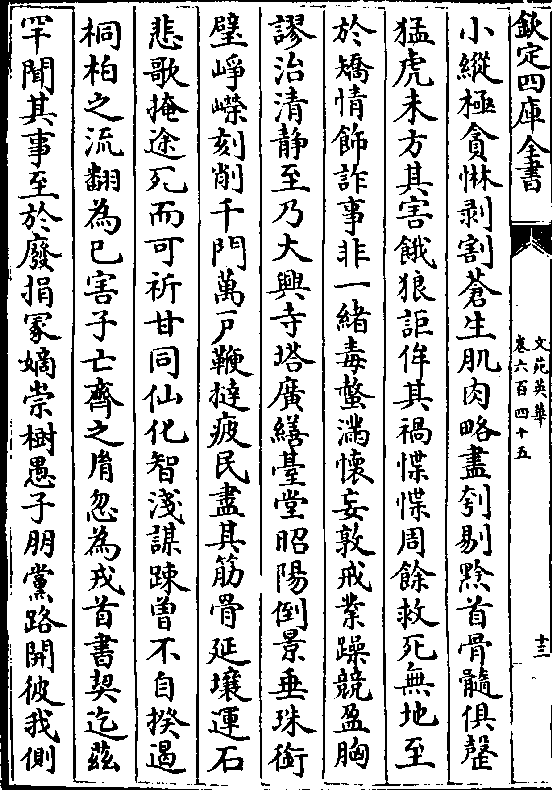 欽定四庫全書
文苑英華
卷六百四十五
十三
小縱極貪惏剥割蒼生肌肉略盡刳剔黔首骨髓俱罄
猛虎未方其害餓狼詎侔其禍惵惵周餘救死無地至
於矯情飾詐事非一緒毒螫滿懷妄敦戒業躁競盈胸
謬治清静至乃大興寺塔廣繕臺堂昭陽倒景垂珠銜
璧崢嶸刻削千門萬户鞭撻疲民盡其筋骨延壤運石
悲歌掩途死而可祈甘同仙化智淺謀踈曽不自揆遏
桐柏之流翻為已害子亡齊之胤忽為戎首書契迄兹
罕聞其事至於廢捐冢嫡崇樹愚子朋黨路開彼我側